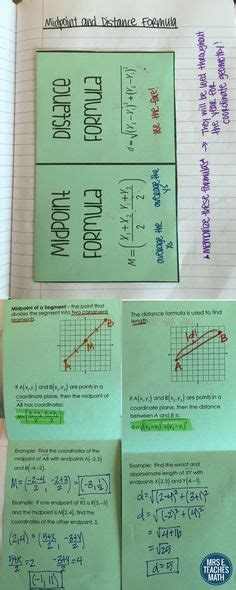 Midpoint and Distance Formula
DISTANCE
FORMULA
d = √(x₂-x₁)² + (y₂-y₁)²
MIDPOINT
FORMULA
M = (x₁+x₂/2, y₁+y₂/2)
average the x's
average the y's
* Memorize these formulas → They will be used throughout
the year for
coordinate geometry!
Midpoint of a Segment – the point that
divides the segment into two congruent
segments.
A
M
B
If A(x₁,y₁) and B(x₂,y₂) are points in a
coordinate plane, then the midpoint of
AB has coordinates:
M = (x₁+x₂/2, y₁+y₂/2)
Example: Find the coordinates of the
midpoint of AB with endpoints A(-2,3)
and B(-4,-2).
M = (-2-4/2, -2+3/2) = (-3, 1/2)
Example: If one endpoint of RS is R(5,-3)
and the midpoint is M(2,4), find the
coordinates of the other endpoint, S.
(2,4) = (5+x/2, -3+y/2)
5+x/2 = 2
-3+y/2 = 4
(-1, 11)
The distance formula is used to find
length.
A
d
B
If A(x₁,y₁) and B(x₂,y₂) are points in a
coordinate plane, then the distance
between A and B is:
d = √(x₂-x₁)² + (y₂-y₁)²
Example: Find the exact and
approximate length of XY with
endpoints X(2,3) and Y(4,-1).
d = √(2-4)² + (3+1)²
d = √(-2)² + (4)²
= √4+16
= √25
d = 5
MRS E
TEACHES
MATH